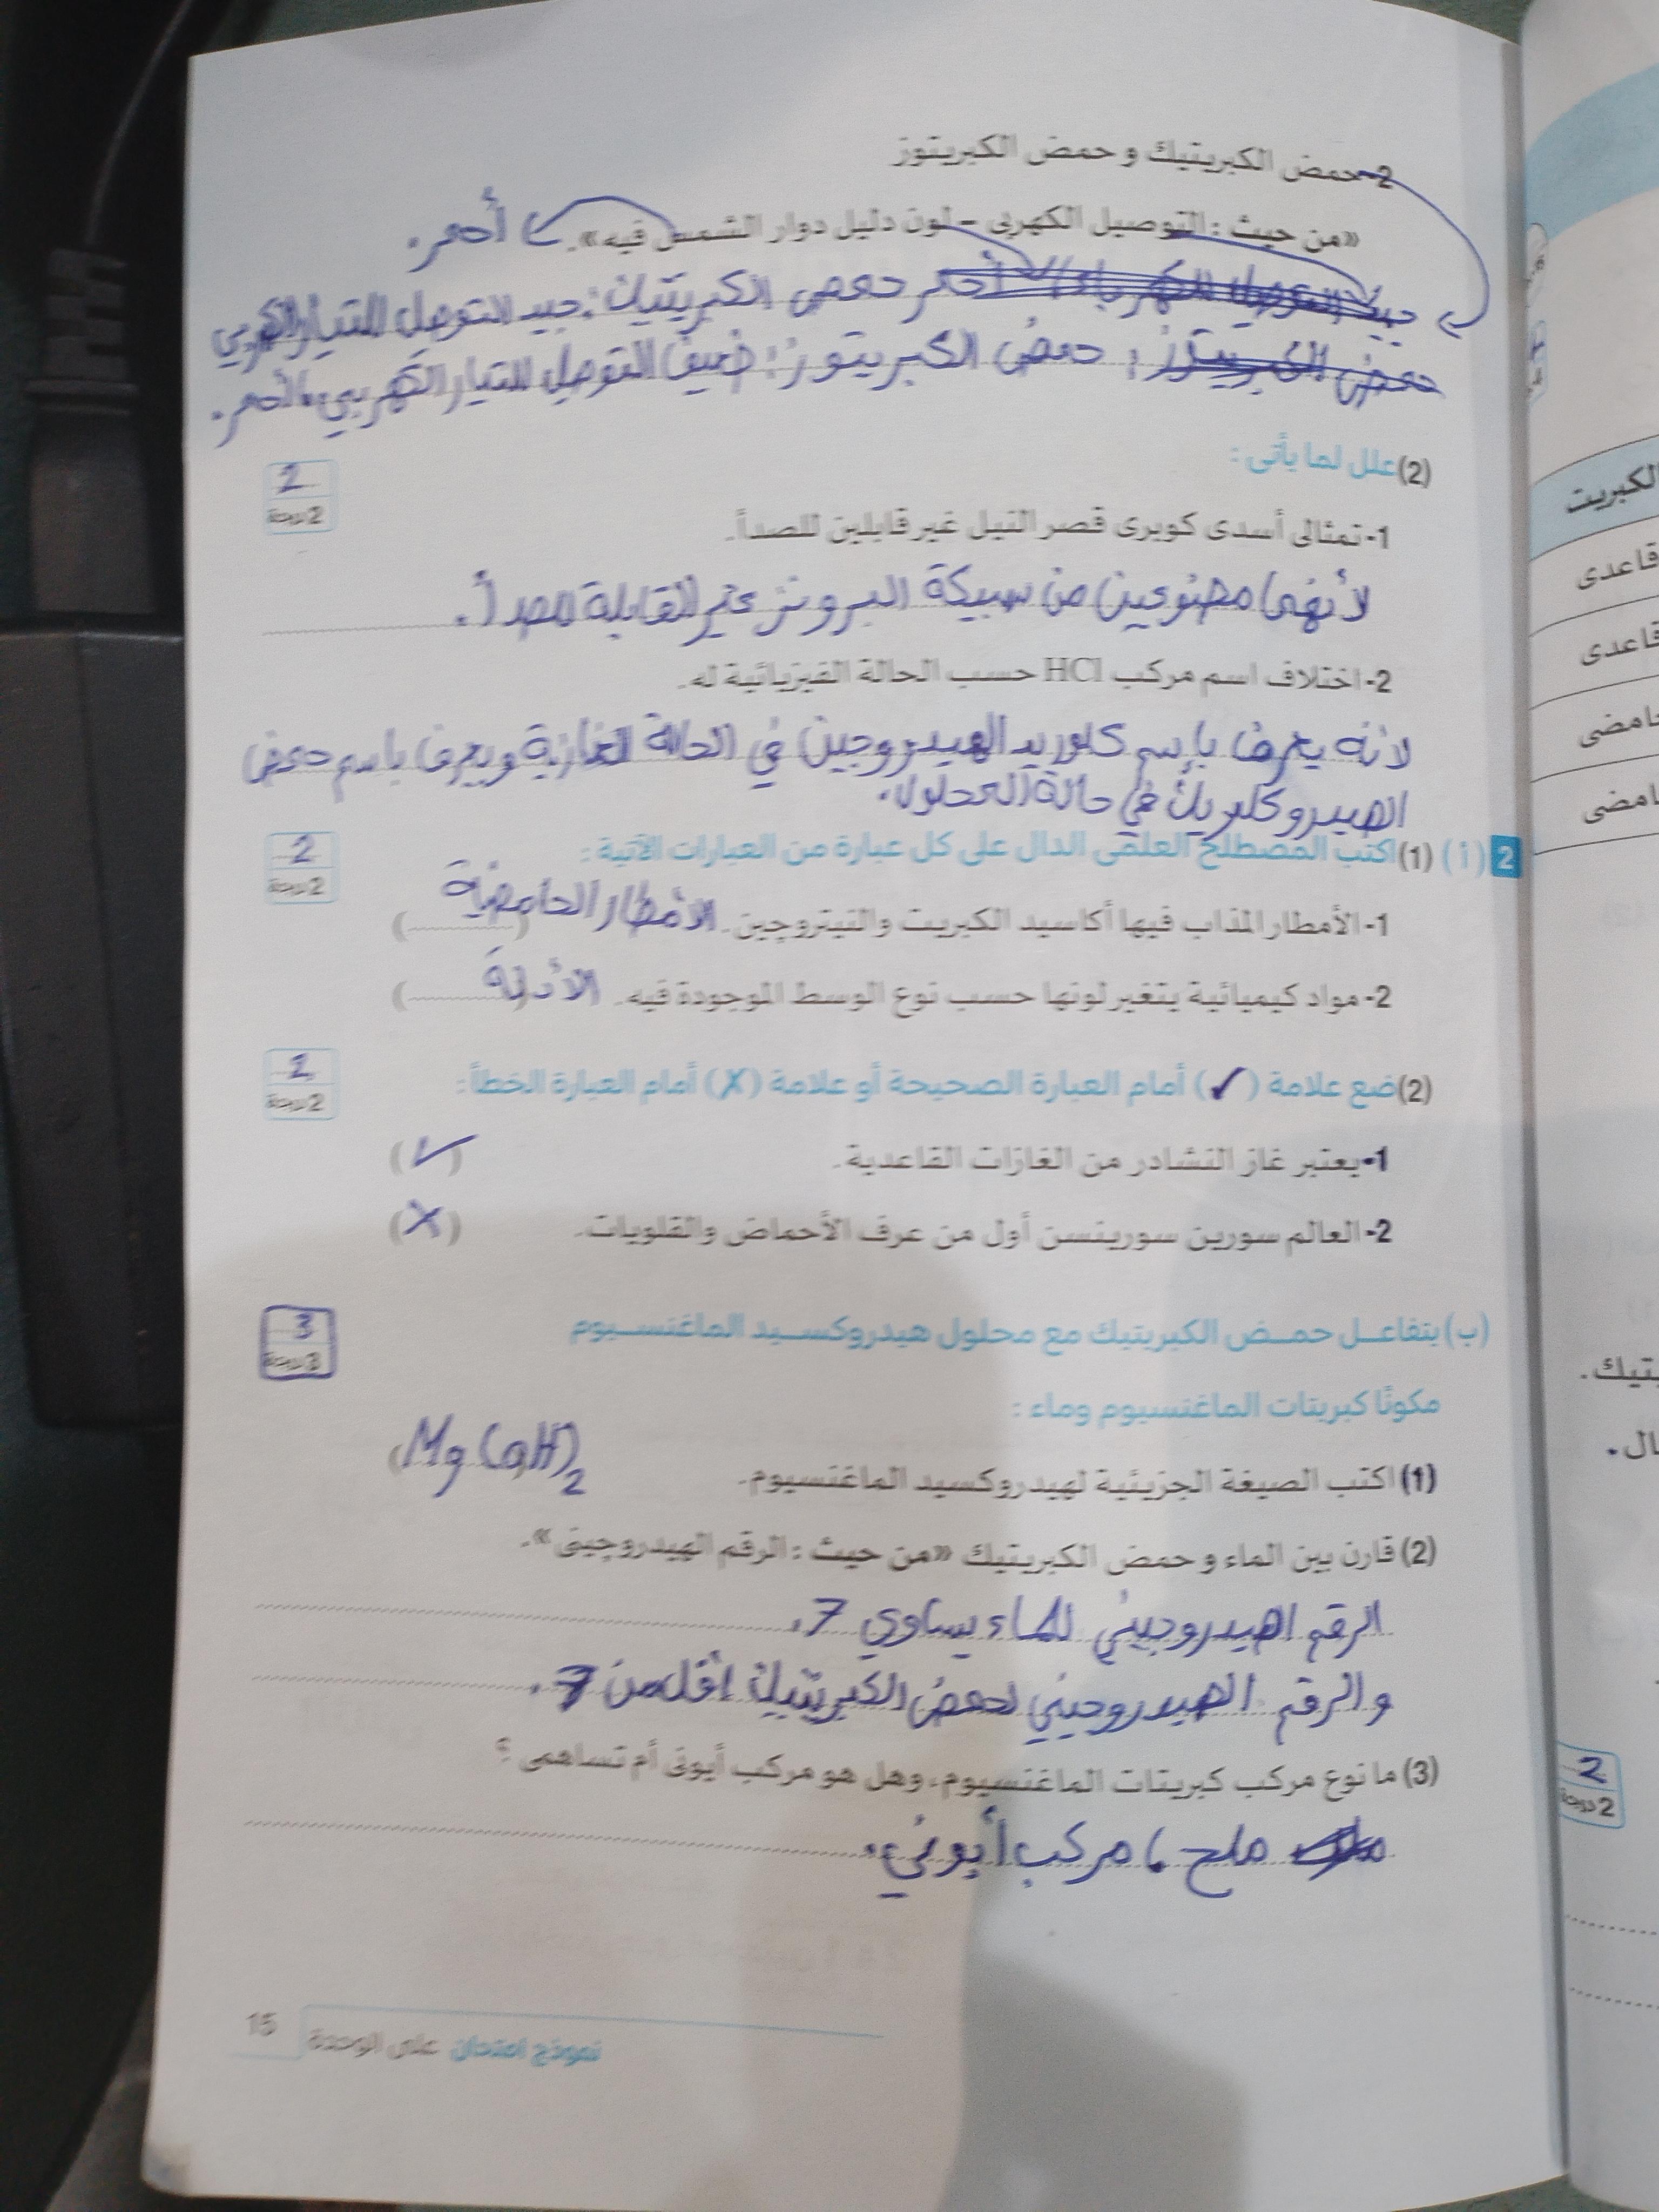 2-حمض الكبريتيك و حمض الكبريتوز
«من حيث : التوصيل الكهربى - لون دليل دوار الشمس فيه». أحمر.
جيد التوصيل للكهرباء، أحمر حمض الكبريتيك: جيد التوصيل للتيار الكهربي
حمض الكبريتوز: حمض الكبريتوز: ضعيف التوصيل للتيار الكهربي، أحمر.
(2) علل لما يأتى :
2
2 درجة
1- تمثالى أسدى كوبرى قصر النيل غير قابلين للصدأ.
لأنهما مصنوعين من سبيكة البرونز غير القابلة للصدأ.
2- اختلاف اسم مركب HCl حسب الحالة الفيزيائية له.
لأنه يعرف بإسم كلوريد الهيدروجين في الحالة الغازية ويعرف باسم حمض
الهيدروكلوريك في حالة المحلول.
2 (أ) (1) اكتب المصطلح العلمى الدال على كل عبارة من العبارات الآتية :
2
2 درجة
1- الأمطار المذاب فيها أكاسيد الكبريت والنيتروجين. الأمطار الحامضية (..........)
2- مواد كيميائية يتغير لونها حسب نوع الوسط الموجودة فيه. الأدلة (..........)
(2) ضع علامة (✓) أمام العبارة الصحيحة أو علامة (X) أمام العبارة الخطأ :
2
2 درجة
1- يعتبر غاز النشادر من الغازات القاعدية. (✓)
2- العالم سورين سورينسن أول من عرف الأحماض والقلويات. (X)
(ب) يتفاعل حمض الكبريتيك مع محلول هيدروكسيد الماغنسيوم
3
3 درجة
مكونًا كبريتات الماغنسيوم وماء :
(1) اكتب الصيغة الجزيئية لهيدروكسيد الماغنسيوم. (Mg(OH)2
(2) قارن بين الماء و حمض الكبريتيك «من حيث : الرقم الهيدروجينى».
الرقم الهيدروجيني للماء يساوي 7.
و الرقم الهيدروجيني لحمض الكبريتيك اقل من 7.
(3) ما نوع مركب كبريتات الماغنسيوم، وهل هو مركب أيونى أم تساهمى ؟
ملح، مركب أيوني.
نموذج امتحان على الوحدة 15
الكبريت
قاعدى
قاعدى
حامضى
حامضى
2
2 درجة